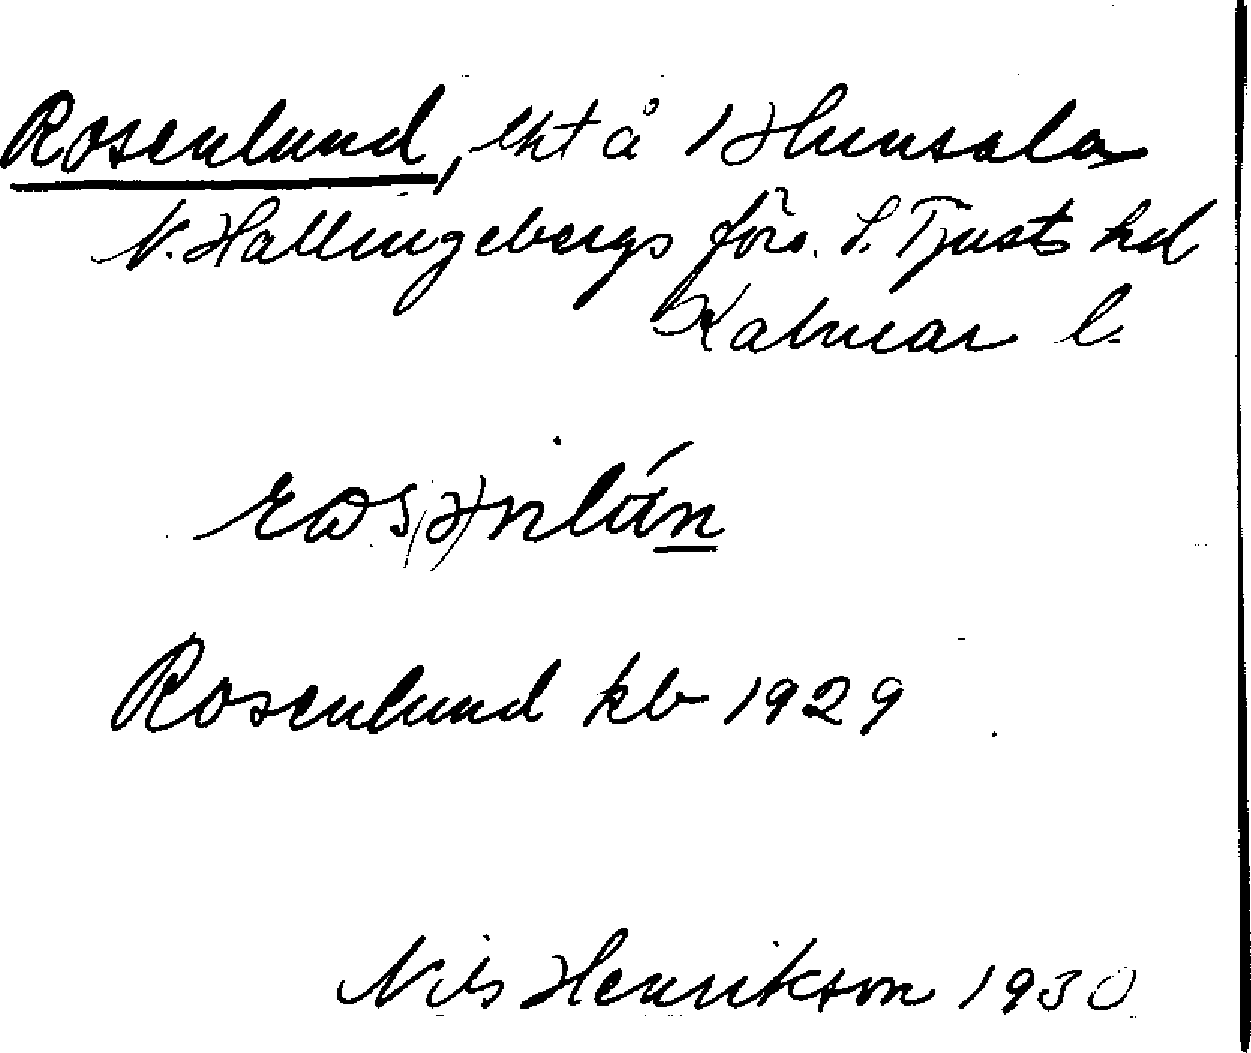 Rosenlund, lht å 1 Hunsala
N. Hallingebergs förs. S. Tjusts hd
Kalmar l.
Rosenlund kb 1929
Nils Henrikson 1930